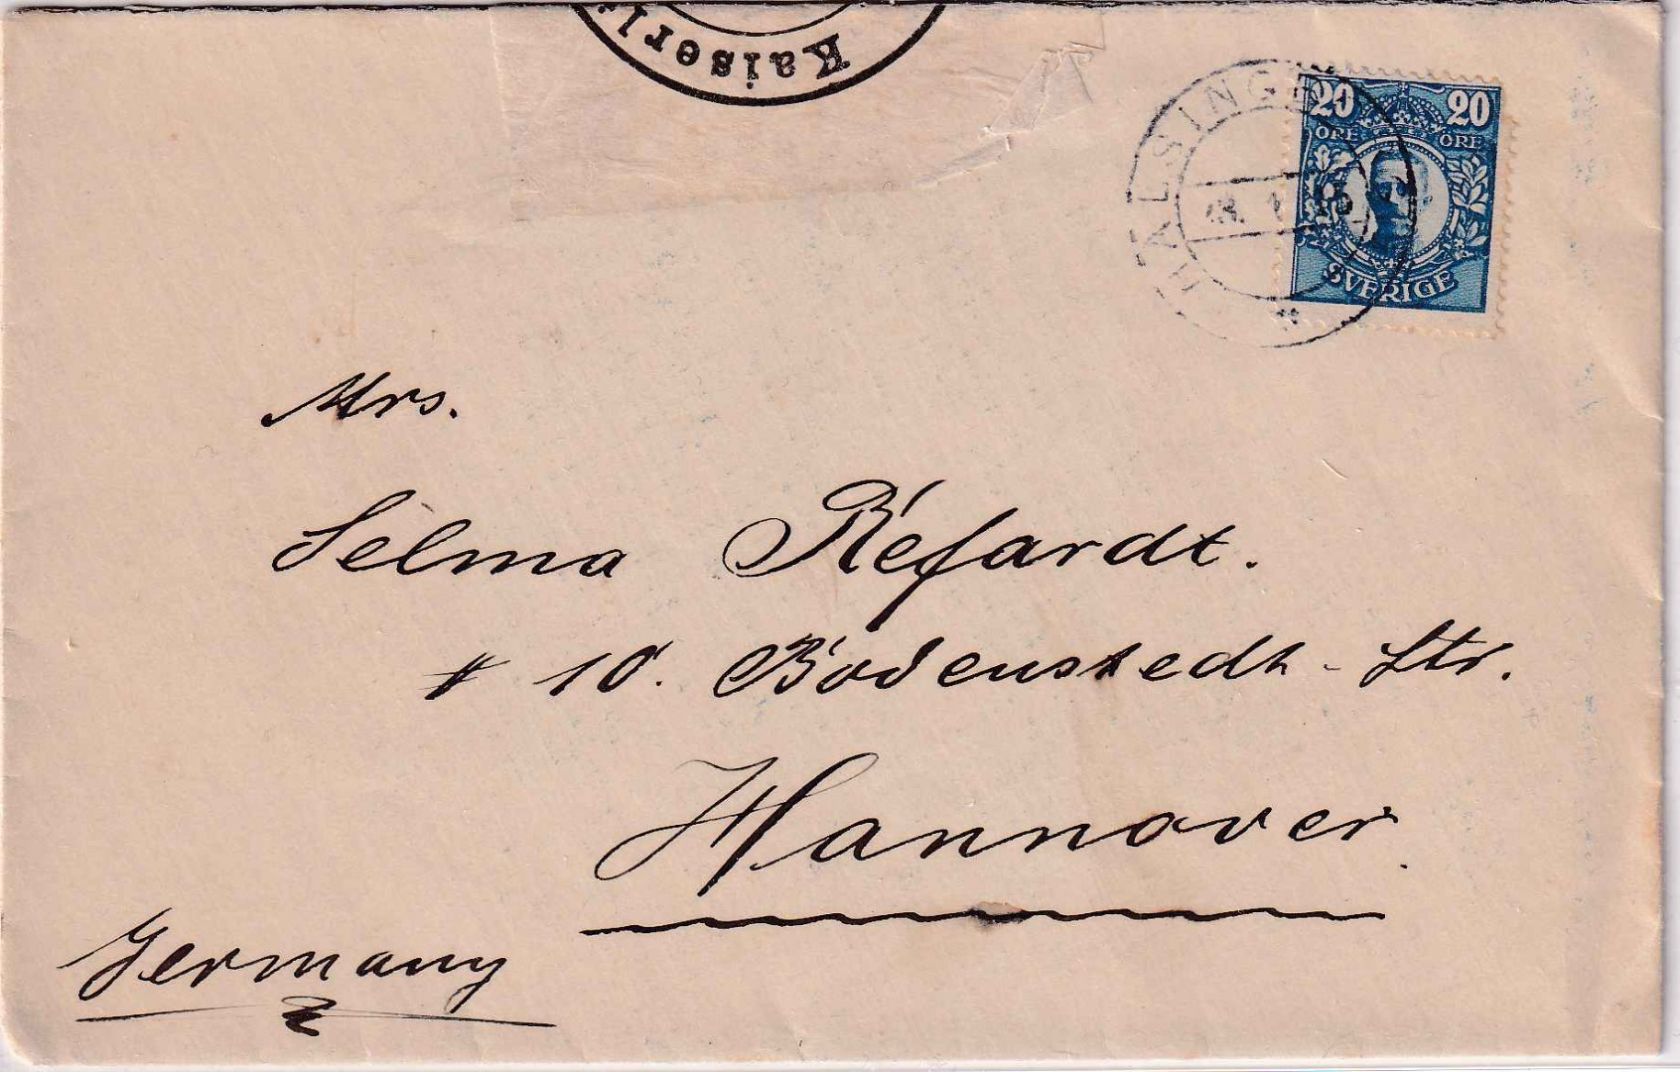 Kaiserl.
HÄLSINGB
20 20
ÖRE ÖRE
SVERIGE
Mrs.
Selma Refardt.
# 10. Bodenstedt-Str.
Hannover.
Germany